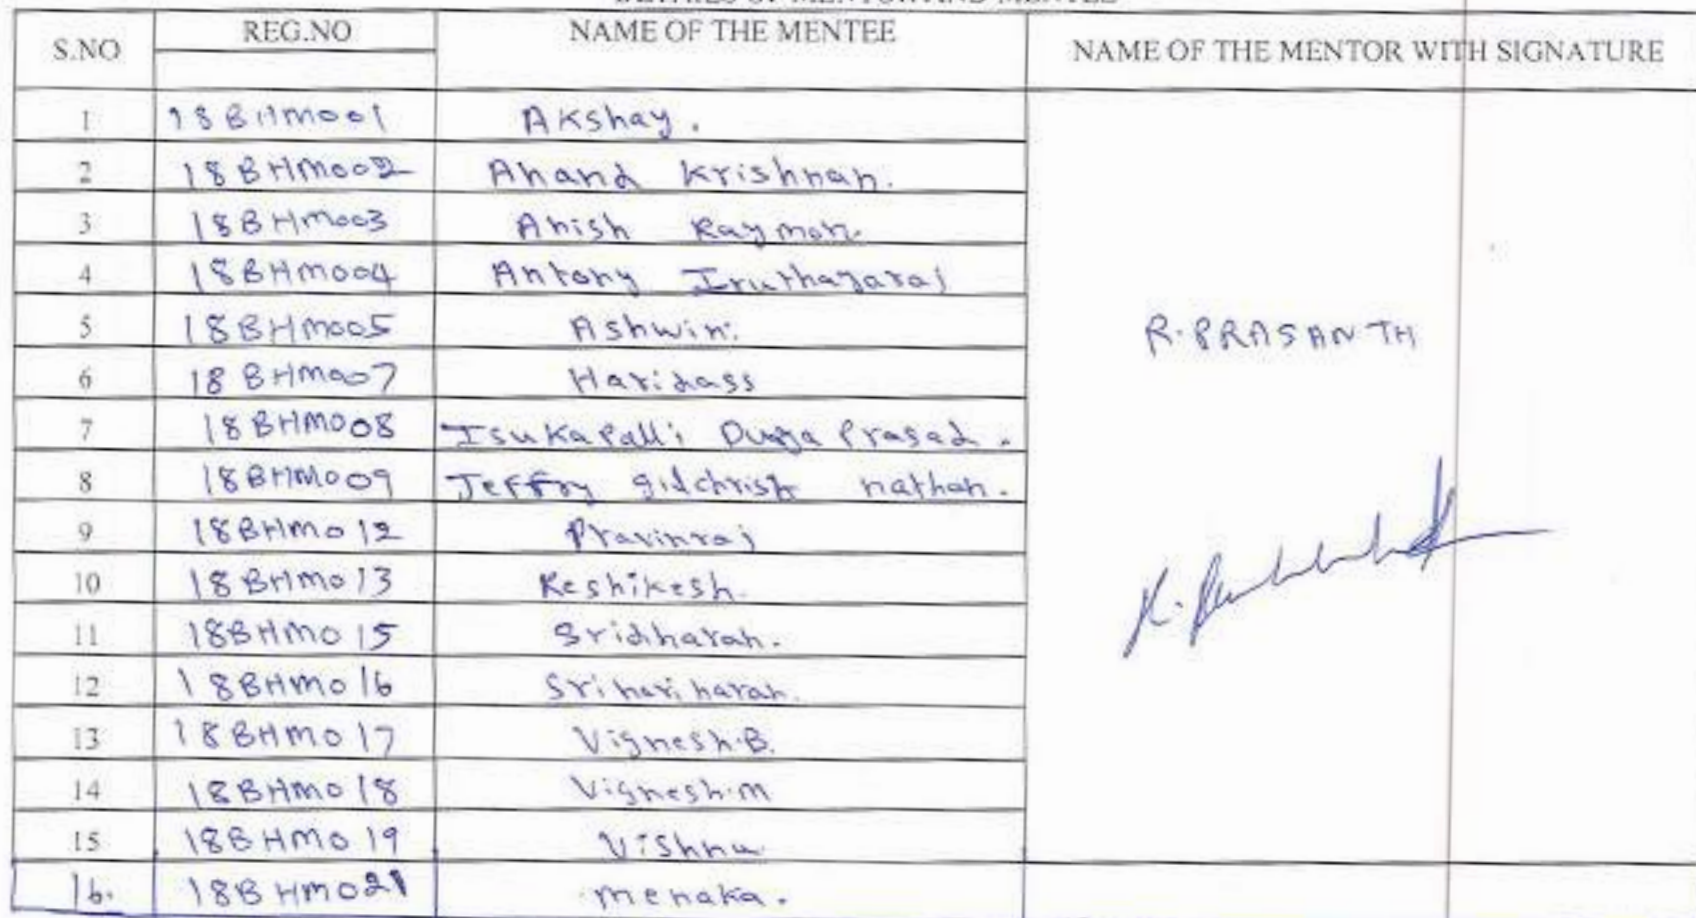 DETAILS OF MENTOR AND MENTEE
S.NO REG.NO NAME OF THE MENTEE NAME OF THE MENTOR WITH SIGNATURE
1 18BHM001 Akshay.
2 18BHM002 Anand Krishnan.
3 18BHM003 Anish Raymon.
4 18BHM004 Antony Iruthayaraj
5 18BHM005 Ashwin. R.PRASANTH
6 18BHM007 Haridass
7 18BHM008 Isukapalli Durga Prasad.
8 18BHM009 Jeffry gilchrist nathan.
9 18BHM012 Pravinraj
10 18BHM013 Reshikesh.
11 18BHM015 Sridharan.
12 18BHM016 Srihariharan.
13 18BHM017 Vignesh.B.
14 18BHM018 Vignesh.M
15 18BHM019 Vishnu
16. 18BHM021 menaka.